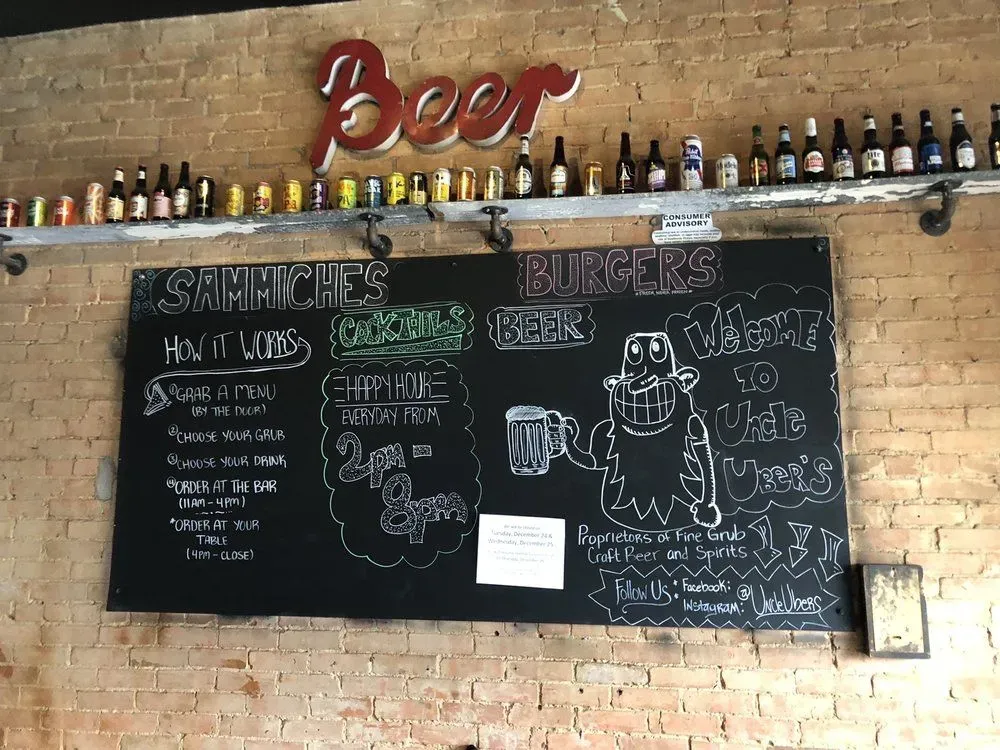 Beer
CONSUMER
ADVISORY
SAMMICHES
BURGERS
HOW IT WORKS
① GRAB A MENU
(BY THE DOOR)
② CHOOSE YOUR GRUB
③ CHOOSE YOUR DRINK
④ ORDER AT THE BAR
(11AM - 4PM)
* ORDER AT YOUR
TABLE
(4PM - CLOSE)
COCKTAILS
HAPPY HOUR
EVERYDAY FROM
2pm -
8pm
BEER
WELCOME
TO
Uncle
UBER'S
Proprietors of Fine Grub
Craft Beer and Spirits
Follow Us * Facebook:
* Instagram: @ UncleUbers
We will be closed on
Tuesday, December 24 &
Wednesday, December 25